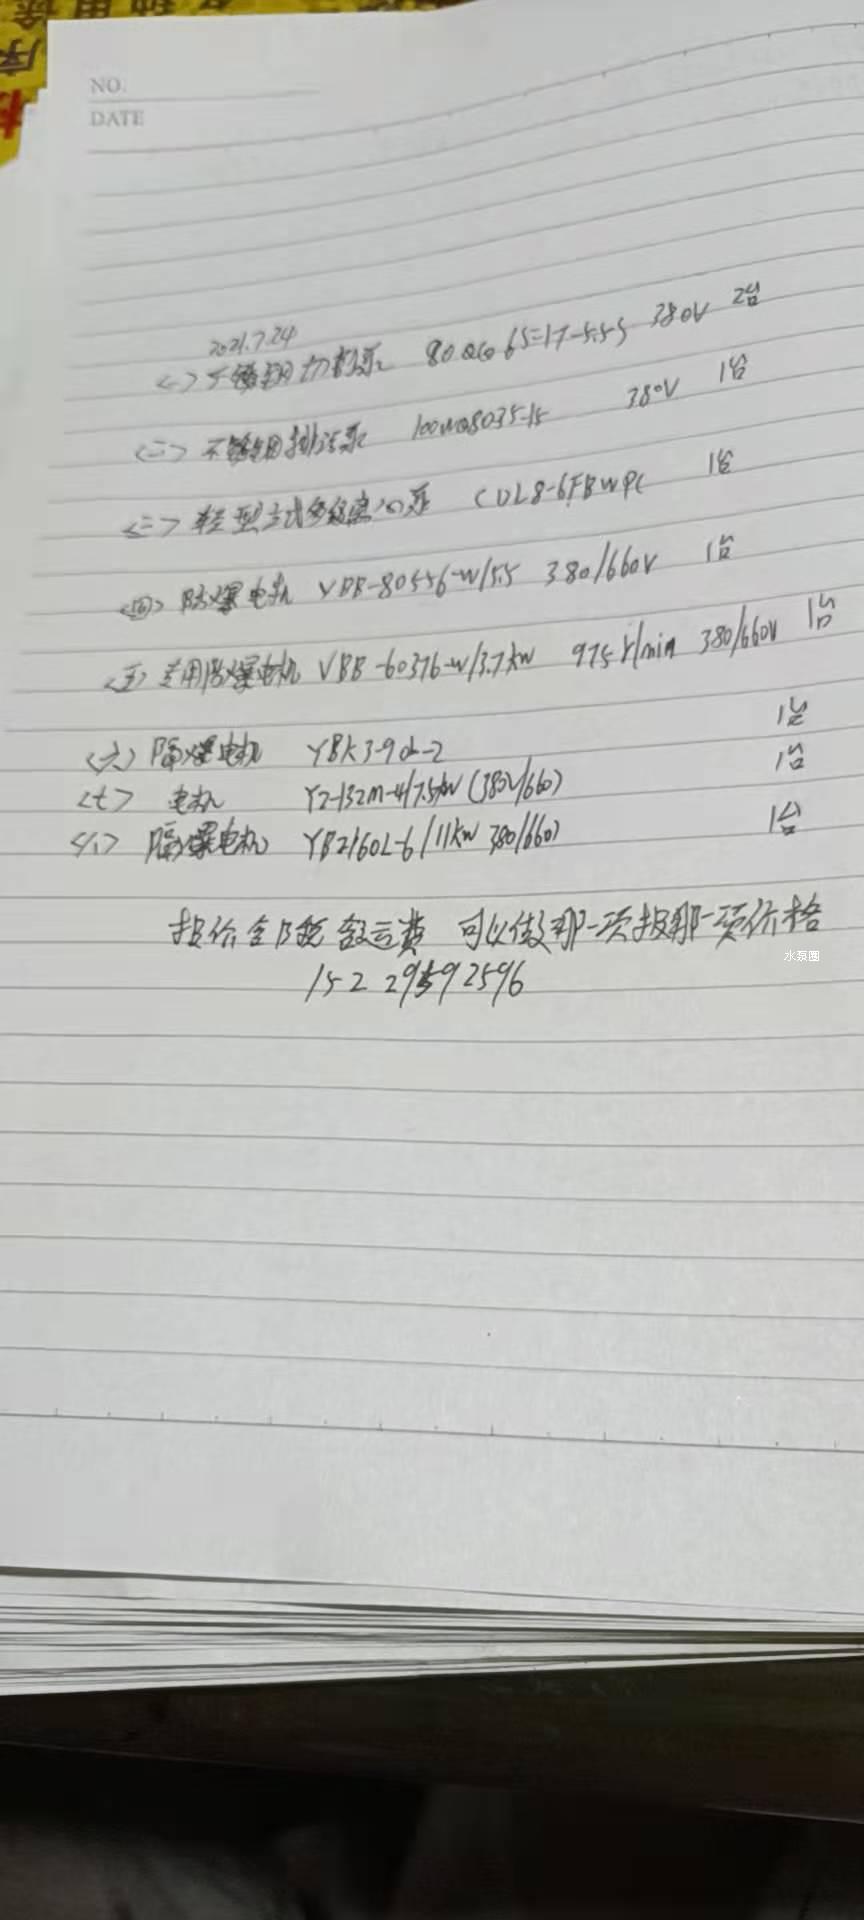 NO.
DATE
2021.7.24
<一>不锈钢切割泵 80 65-17-5.5 380V 2台
<二>不锈钢排污泵 100WQ8035-15 380V 1台
<三>轻型立式多级离心泵 CDL8-6FBWPC 1台
<四>防爆电机 YBB-80556-W/5.5 380/660V 1台
<五>专用防爆电机 VBB-60376-W/3.7kw 975r/min 380/660V 1台
<六>隔爆电机 YBK3-90L-2 1台
<七> 电机 Y2-132m-4/7.5kw(380V/660) 1台
<八>隔爆电机 YB2160L-6/11kw 380/660) 1台
报价含13税 含运费 可以做那一项报那一项价格
水泵圈